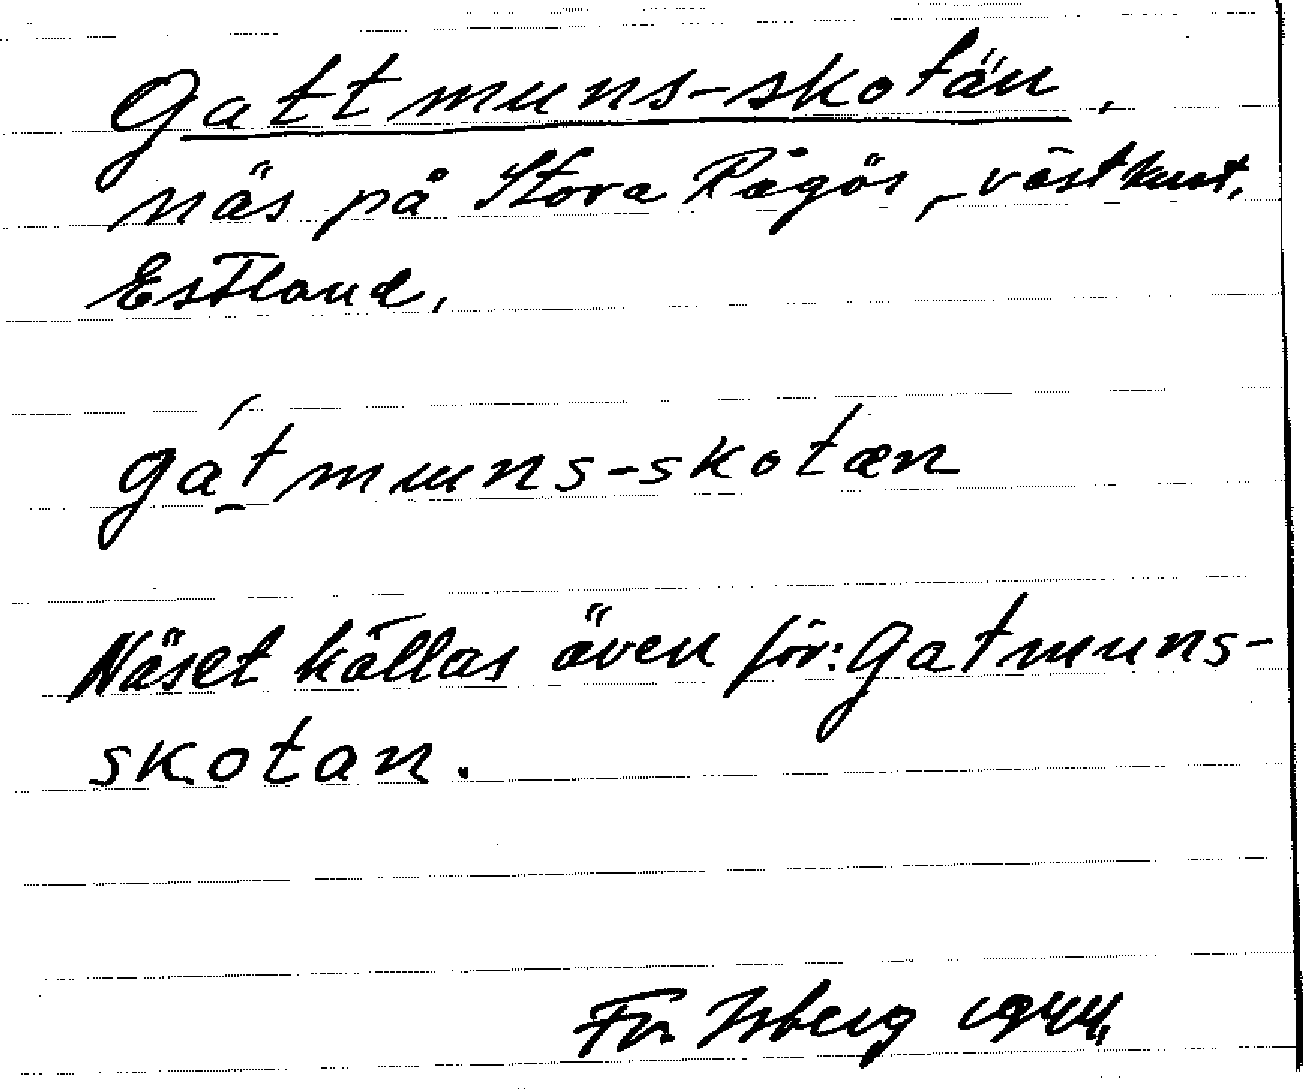 Gattmuns-skotän,
näs på Stora Rågös västkust,
Estland.
gát̲muns-skotæn
Näset kallas även för: Gatmuns-
skotan.
Fr. Isberg 1944.